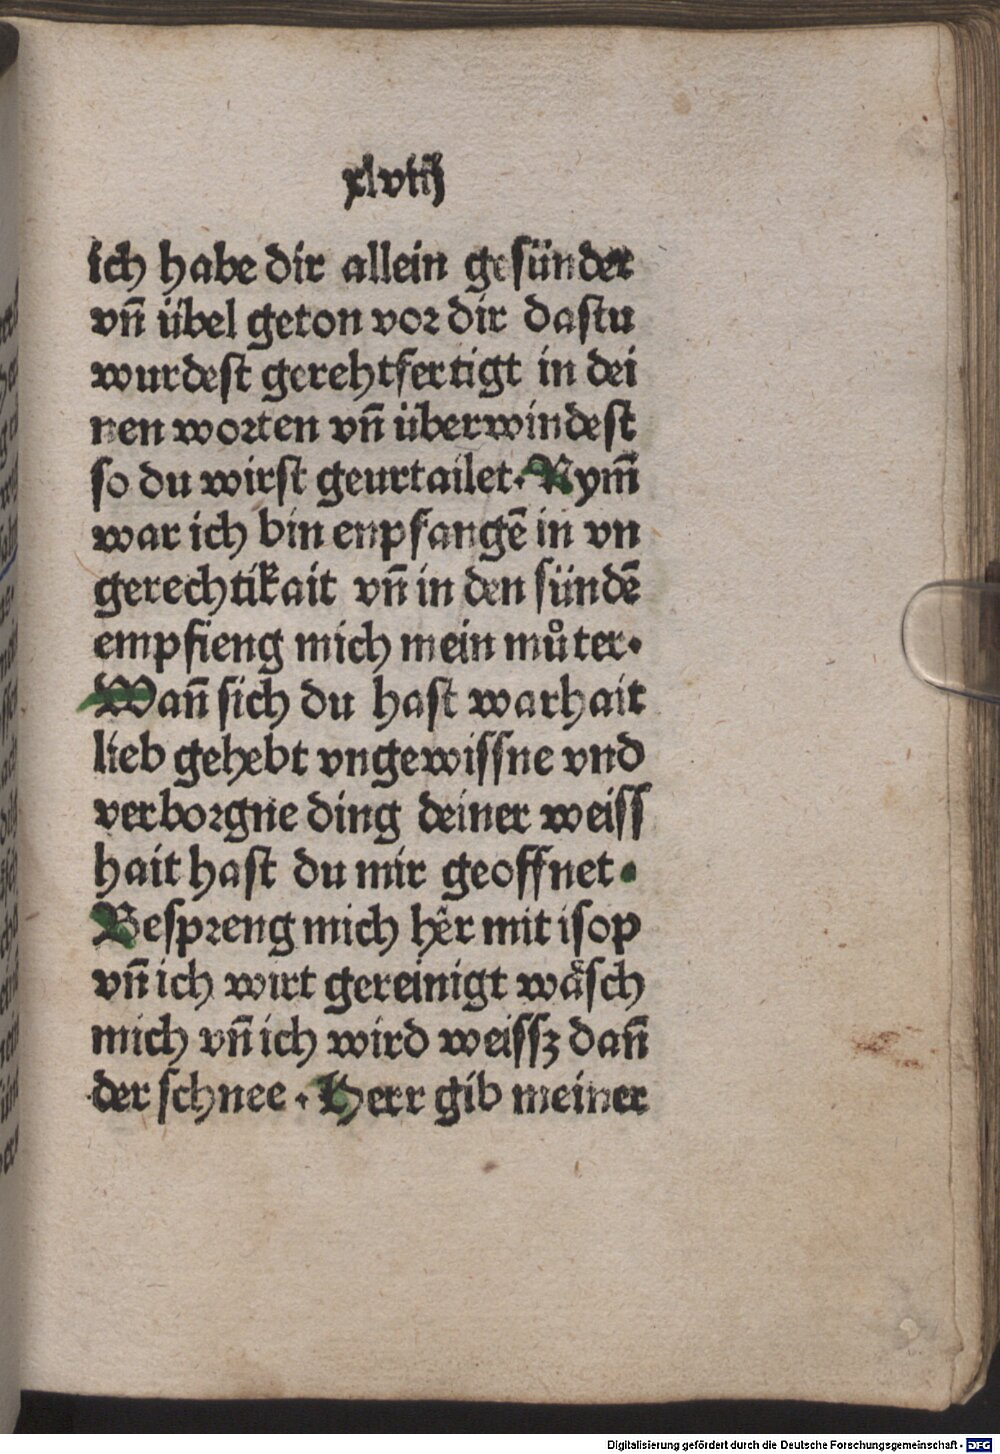 xlviij
ich habe dir allein gesünder
vn̄ übel geton vor dir dastu
wurdest gerehtfertigt in dei
nen worten vn̄ überwindest
so du wirst geurtailet. Nym̄
war ich bin enpfangē in vn
gerechtikait vn̄ in den sündē
empfieng mich mein můter.
Wan̄ sich du hast warhait
lieb gehebt vngewissne vnd
verborgne ding deiner weiss
hait hast du mir geoffnet.
Bespreng mich hēr mit isop
vn̄ ich wirt gereinigt wäsch
mich vn̄ ich wird weissz dan̄
der schnee. Herr gib meiner
Digitalisierung gefördert durch die Deutsche Forschungsgemeinschaft - DFG